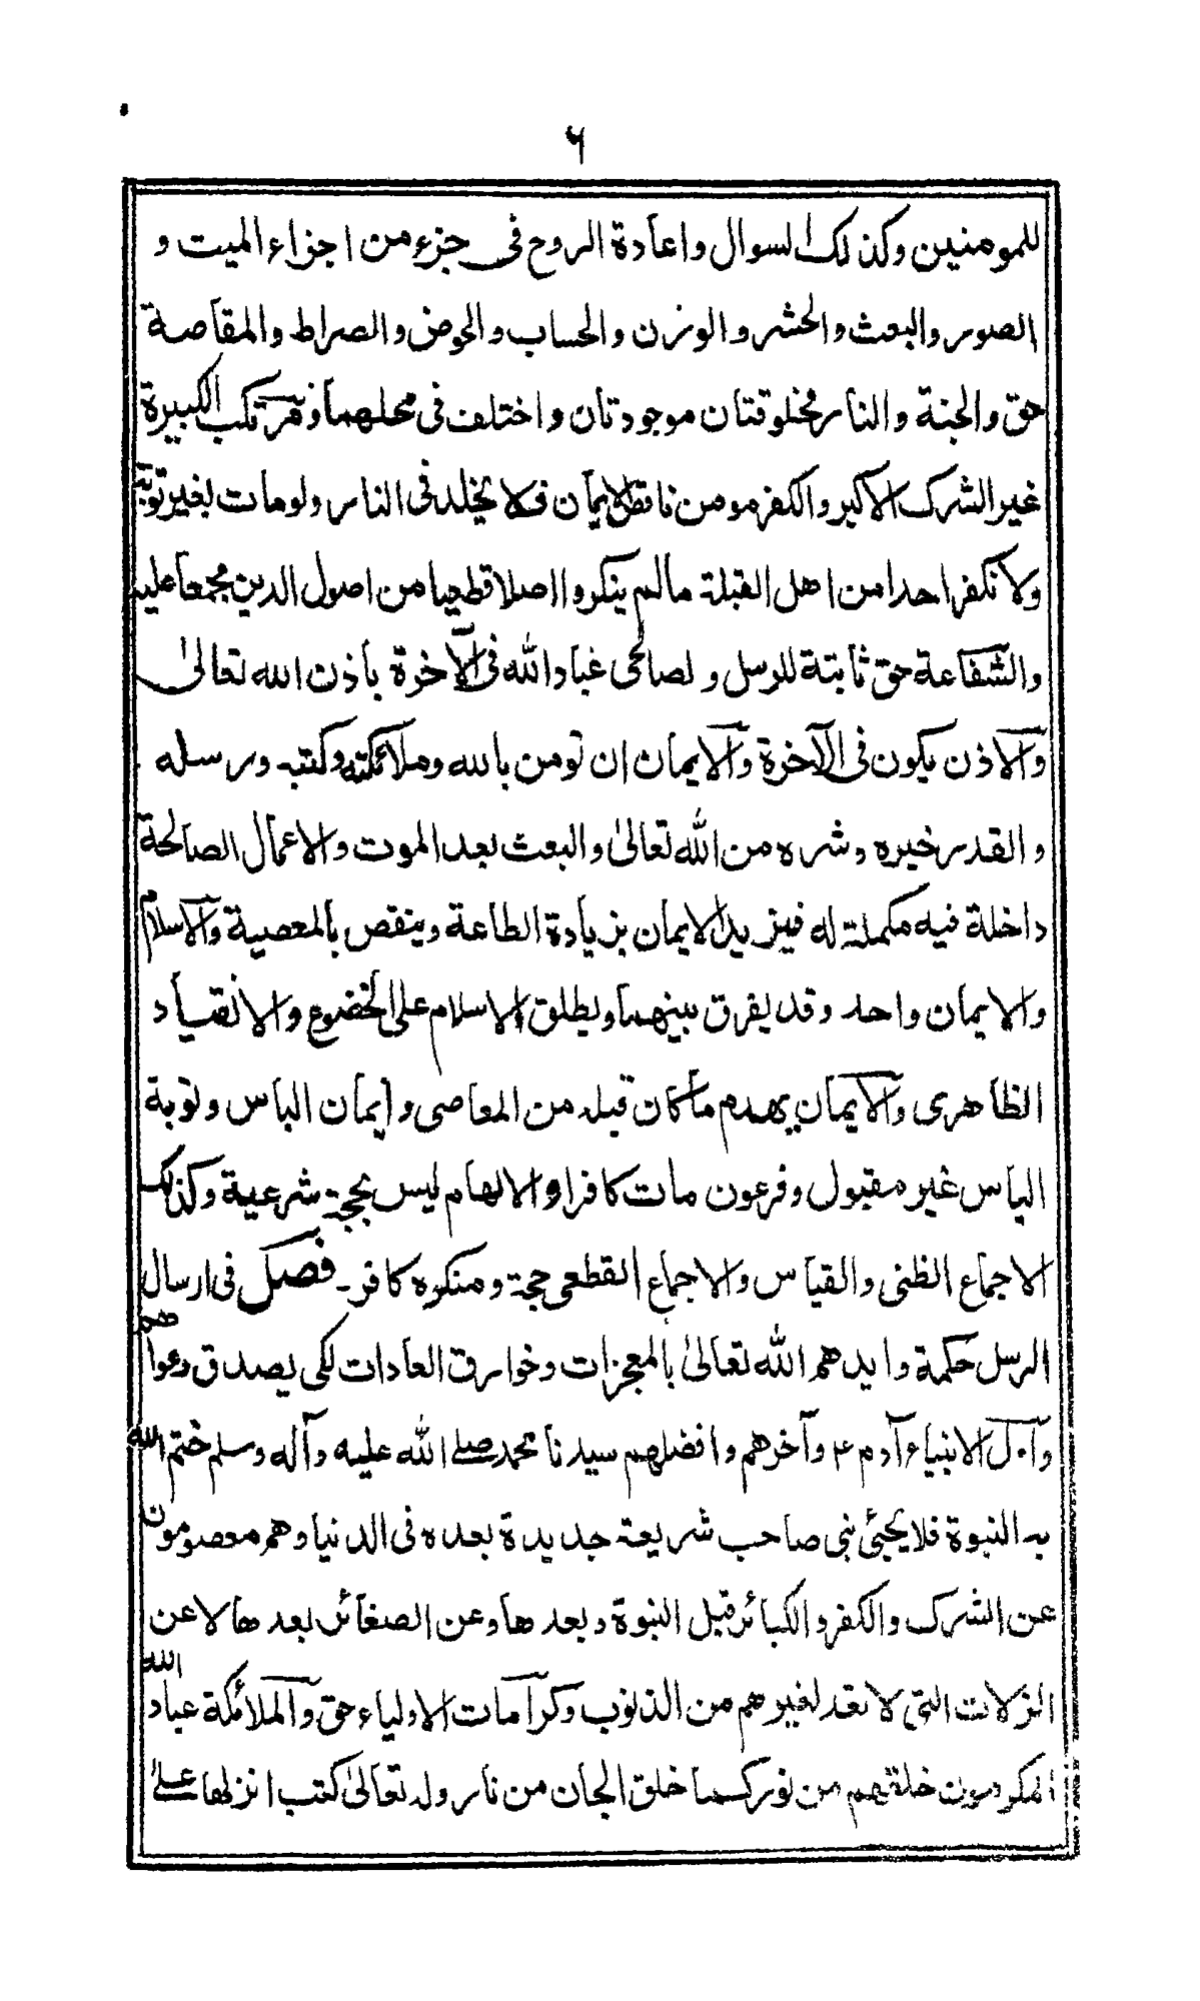 ۶
للمومنين وكذلك السوال واعادة الروح فى جزء من اجزاء الميت و
الصور والبعث والحشر والوزن والحساب والحوض والصراط والمقاصة
حق والجنة والنار مخلوقتان موجودتان واختلف فى محلهما ومرتكب الكبيرة
غير الشرك الاكبر والكفر مومن ناقص الايمان فلا يخلد فى النار ولومات بغير توبة
ولا نكفر احدا من اهل القبلة مالم ينكروا اصلا قطعيا من اصول الدين مجمعا عليه
والشفاعة حق ثابتة للرسل ولصالحى عباد الله فى الآخرة باذن الله تعالىٰ
والاذن يكون فى الآخرة والايمان ان تومن بالله وملائكته وكتبه ورسله
والقدر خيره وشره من الله تعالىٰ والبعث بعد الموت والاعمال الصالحة
داخلة فيه مكملة له فيزيد الايمان بزيادة الطاعة وينقص بالمعصية والاسلام
والايمان واحد وقد يفرق بينهما ويطلق الاسلام على الخضوع والانقياد
الظاهرى والايمان يهدم ما كان قبله من المعاصى وايمان الباس وتوبة
الياس غير مقبول وفرعون مات كافرا والالهام ليس بحجة شرعية وكذلك
الاجماع الظنى والقياس والاجماع القطعى حجة ومنكره كافر۔ فصل فى ارسال
الرسل حكمة وايدهم الله تعالىٰ بالمعجزات وخوارق العادات لكى يصدق دعواهم
واول الانبياء آدم ع وآخرهم وافضلهم سيدنا محمد صلے الله عليه وآله وسلم ختم الله
به النبوة فلا يجئ نبى صاحب شريعة جديدة بعده فى الدنيا وهم معصومون
عن الشرك والكفر والكبائر قبل النبوة وبعدها وعن الصغائر بعدها لا عن
الزلات التى لا تعد لغيرهم من الذنوب وكرامات الاولياء حق والملائكة عباد الله
المكرمون خلقهم من نور كما خلق الجان من نار وله تعالىٰ كتب انزلها علےٰ